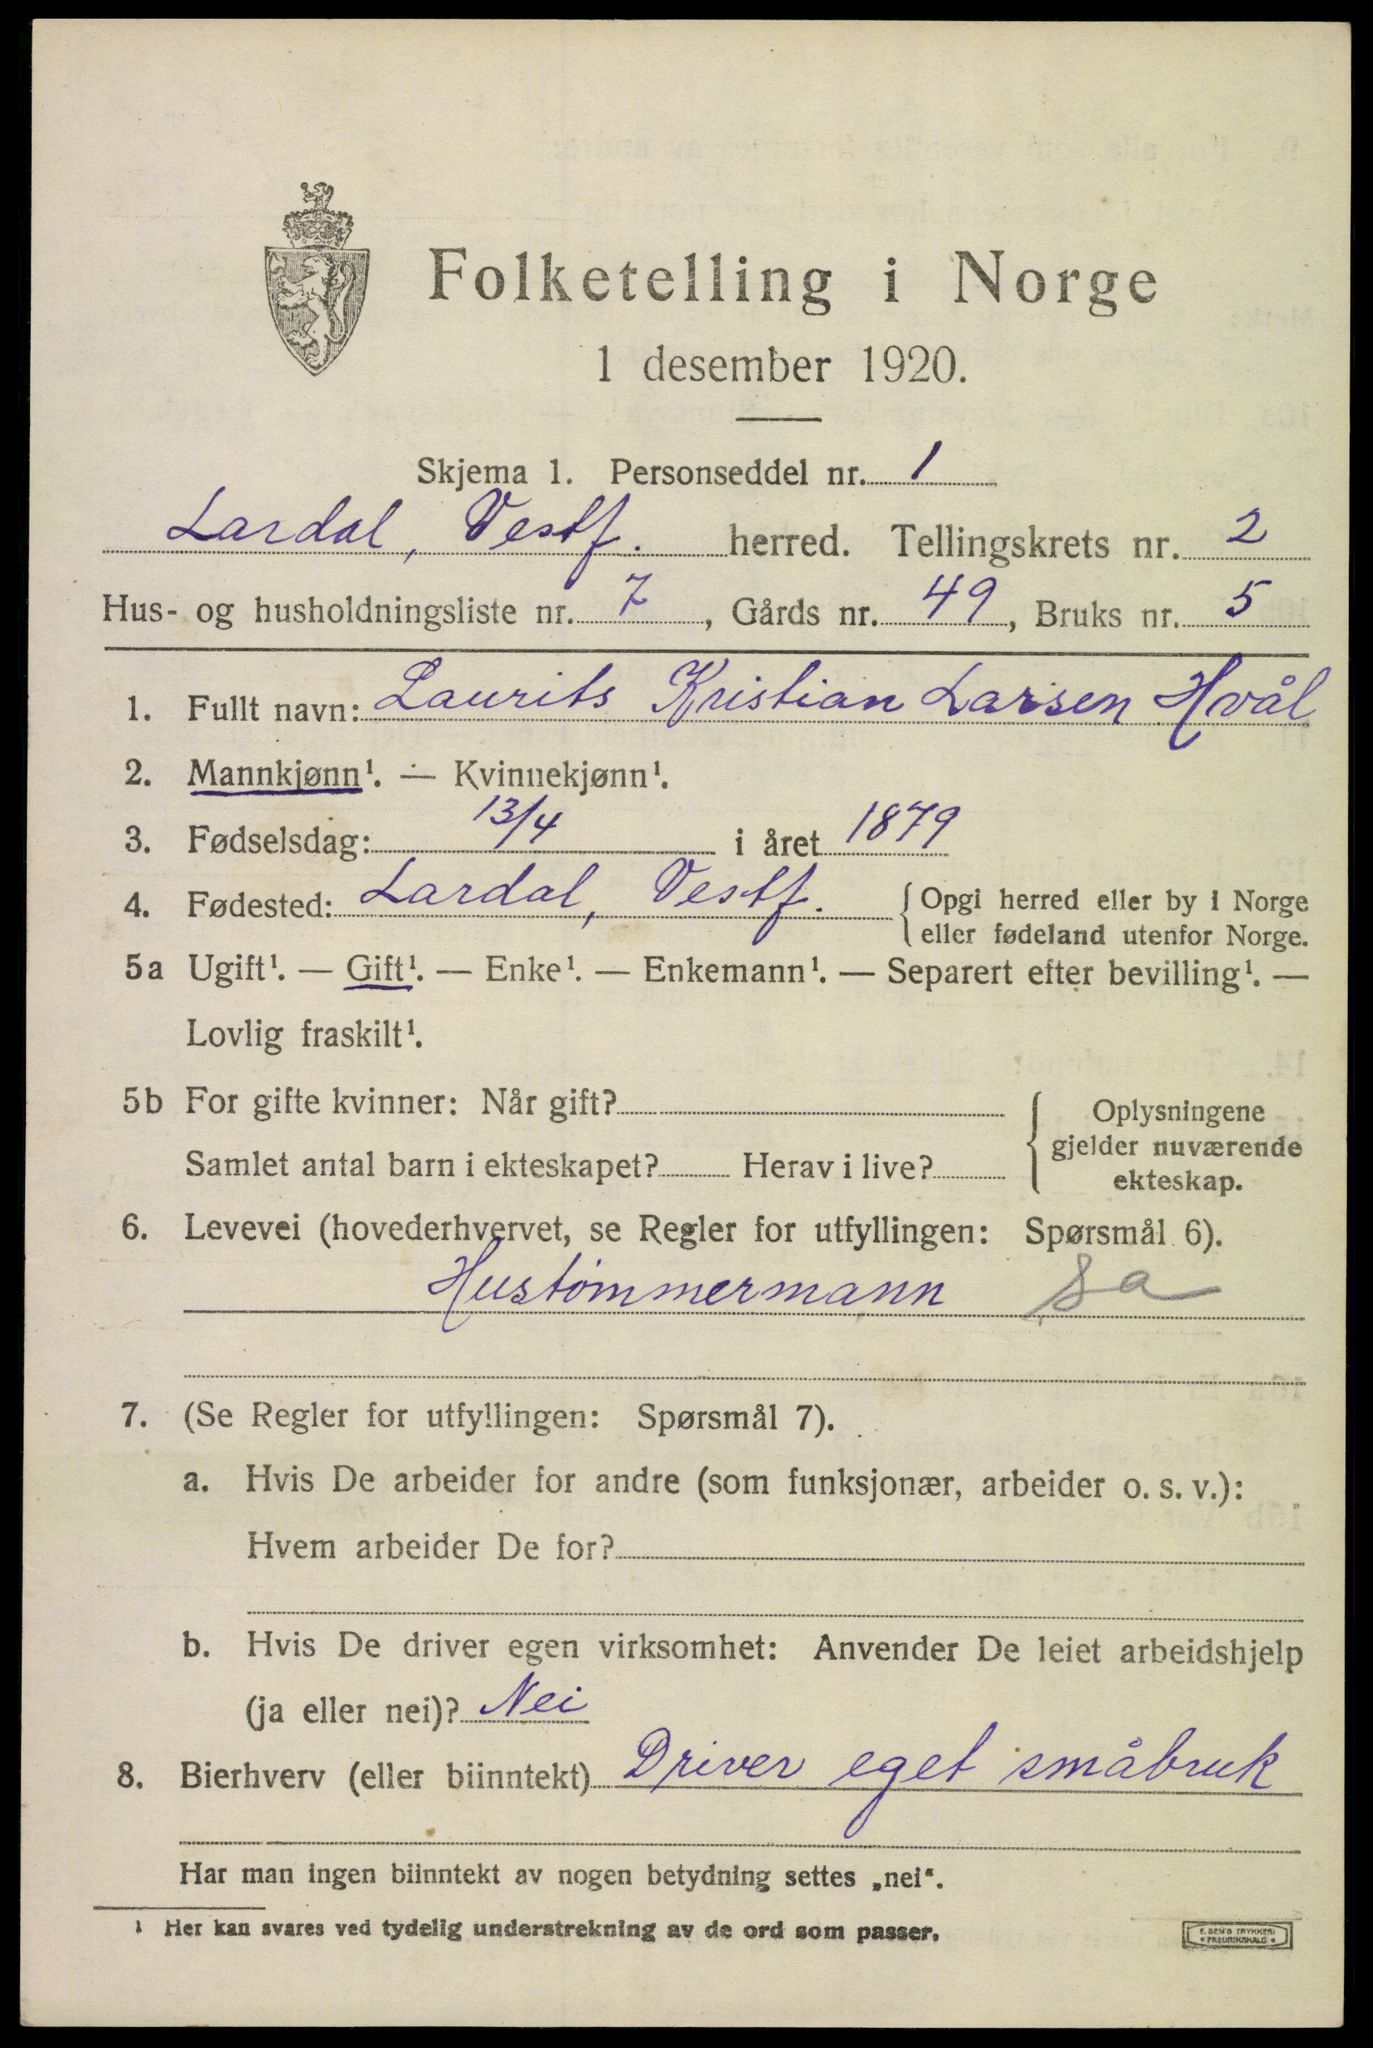 Folketelling i Norge
1 desember 1920.
Skjema 1. Personseddel nr. 1
Lardal, Vestf. herred. Tellingskrets nr. 2
Hus- og husholdningsliste nr. 7, Gårds nr. 49, Bruks nr. 5
1. Fullt navn: Laurits Kristian Larsen Hvål
2. Mannkjønn¹. — Kvinnekjønn¹.
3. Fødselsdag: 13/4 i året 1879
4. Fødested: Lardal, Vestf. { Opgi herred eller by i Norge
eller fødeland utenfor Norge.
5a Ugift¹. — Gift¹. — Enke¹. — Enkemann¹. — Separert efter bevilling¹. —
Lovlig fraskilt¹.
5b For gifte kvinner: Når gift?
Samlet antal barn i ekteskapet? Herav i live?
{ Oplysningene
gjelder nuværende
ekteskap.
6. Levevei (hovederhvervet, se Regler for utfyllingen: Spørsmål 6).
Hustømmermann
7. (Se Regler for utfyllingen: Spørsmål 7).
a. Hvis De arbeider for andre (som funksjonær, arbeider o. s. v.):
Hvem arbeider De for?
b. Hvis De driver egen virksomhet: Anvender De leiet arbeidshjelp
(ja eller nei)? Nei
8. Bierhverv (eller biinntekt) Driver eget småbruk
Har man ingen biinntekt av nogen betydning settes „nei“.
¹ Her kan svares ved tydelig understrekning av de ord som passer.
E. SEM'S TRYKKERI
FREDRIKSHALD